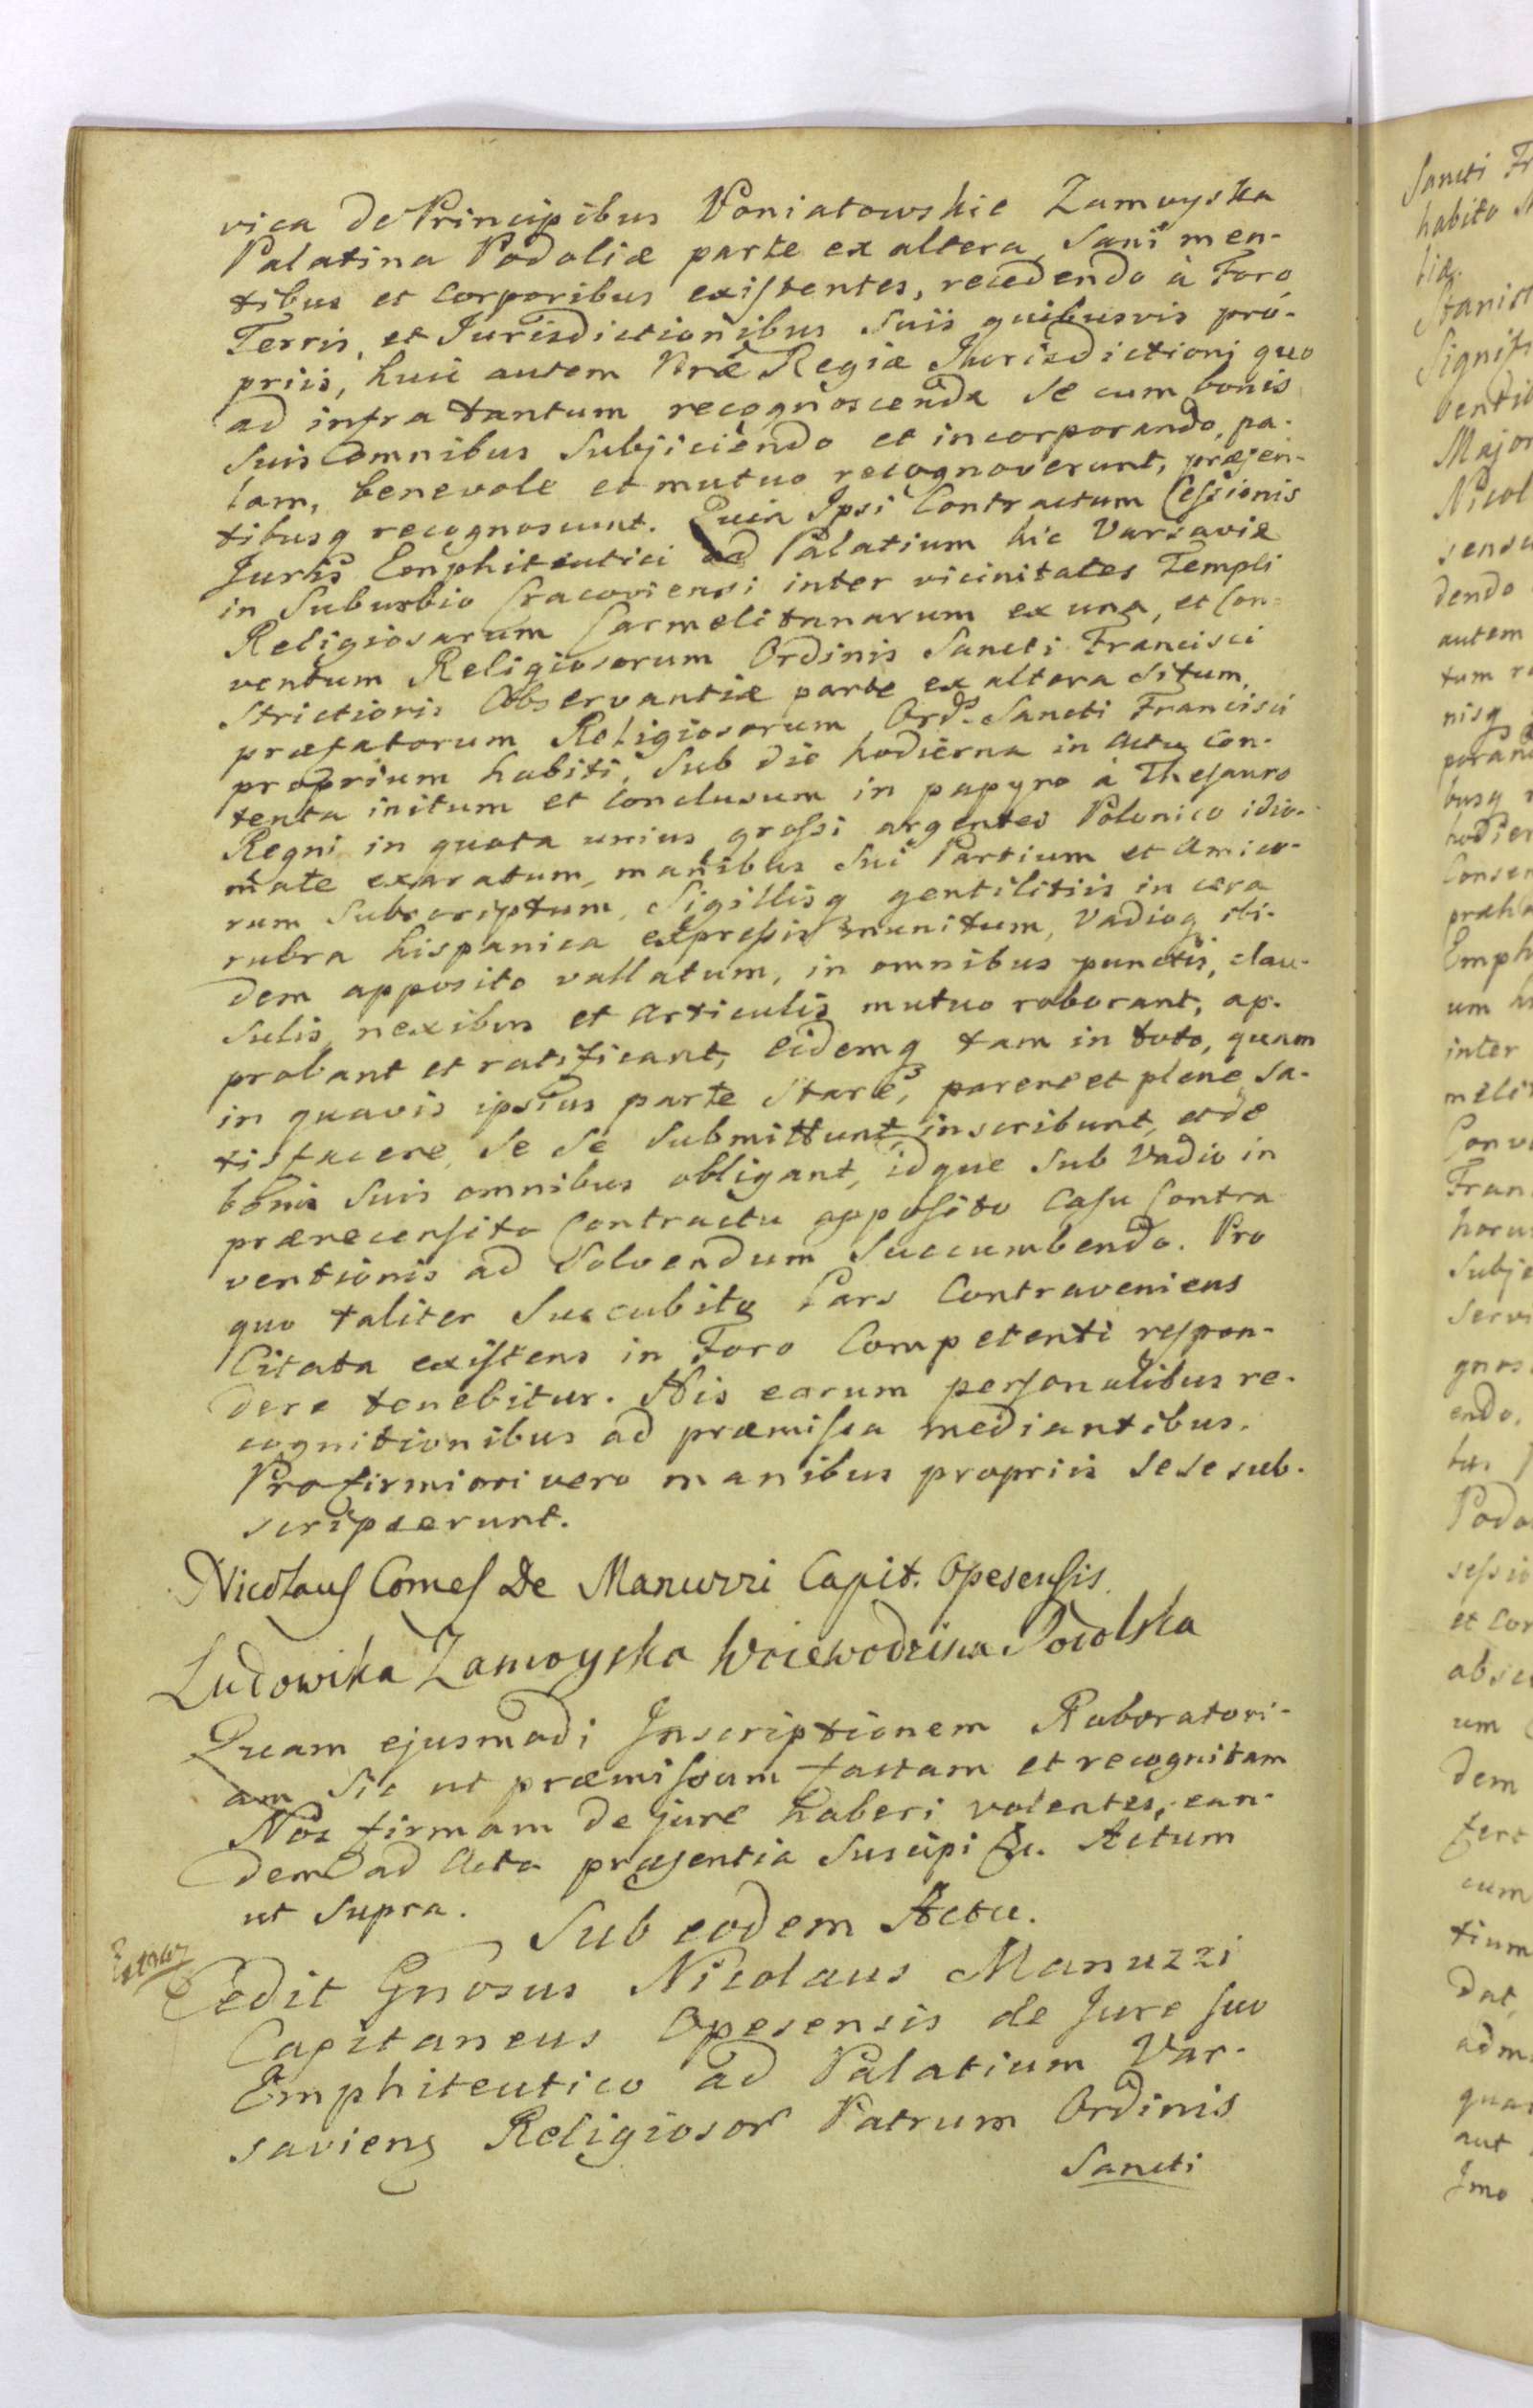 vica de Principibus Poniatowskie Zamoyska
Palatina Podoliæ parte ex altera, Sani men-
tibus et Corporibus existentes, recedendo à Foro
Terris, et Jurisdictionibus Suis quibusvis pro-
priis, huic autem Præ Regiæ Jurisdictioni quo
ad infra tantum recognoscenda se cum bonis
Suis omnibus Subjiciendo et incorporando, pa-
lam, benevole et mutuo recognoverunt, præsen-
tibusq recognoscunt. Quia Ipsi Contractum Cessionis
Juris Emphiteutici ad Palatium hic Varsaviæ
in Suburbio Cracoviensi inter vicinitates Templi
Religiosarum Carmelitanarum ex una, et Con-
ventum Religiosorum Ordinis Sancti Francisci
Strictioris Observantiæ parte ex altera Situm,
præfatorum Religiosorum Ordis Sancti Francisci
proprium habiti, Sub die hodierna in actu con-
tenta initum et Conclusum in papyro à Thesauro
Regni in quota unius grossi argentei Polonico idio-
mate exaratum, manibus Sui Partium et Amico-
rum Subscriptum, Sigillisq gentilitiis in cera
rubra hispanica expressis munitum, Vadioq ibi-
dem apposito vallatum, in omnibus punctis, clau-
sulis, nexibus et articulis mutuo roborant, ap-
probant et ratificant, eidemq tam in toto, quam
in quavis ipsius parte Stare, parere et plene Sa-
tisfacere, Se Se Submittunt, inscribunt, et de
bonis Suis omnibus obligant, idque Sub Vadio in
prærecensito Contractu apposito Casu Contra
ventionis ad Solvendum Succumbendo. Pro
quo taliter Succubito Pars Contraveniens
Citata existens in Foro Competenti respon-
dere tenebitur. His earum personalibus re-
cognitionibus ad præmissa mediantibus.
Pro firmiori vero manibus propriis sese sub-
scripserunt.
Nicolaus Comes De Manuzzi Capit. Opesensis
Ludowika Zamoyska Woiewodzina Podolska
Quam ejusmodi Inscriptionem Roboratori-
am Sic ut præmissum factam et recognitam
Nos firmam de jure haberi volentes, ean-
dem ad Acta præsentia Suscipi &c. Actum
ut Supra.
Sub eodem Actu.
Cedit Gnosus Nicolaus Manuzzi
Capitaneus Opesensis de Jure suo
Emphiteutico ad Palatium Var-
saviens Religiosor Patrum Ordinis
Sancti